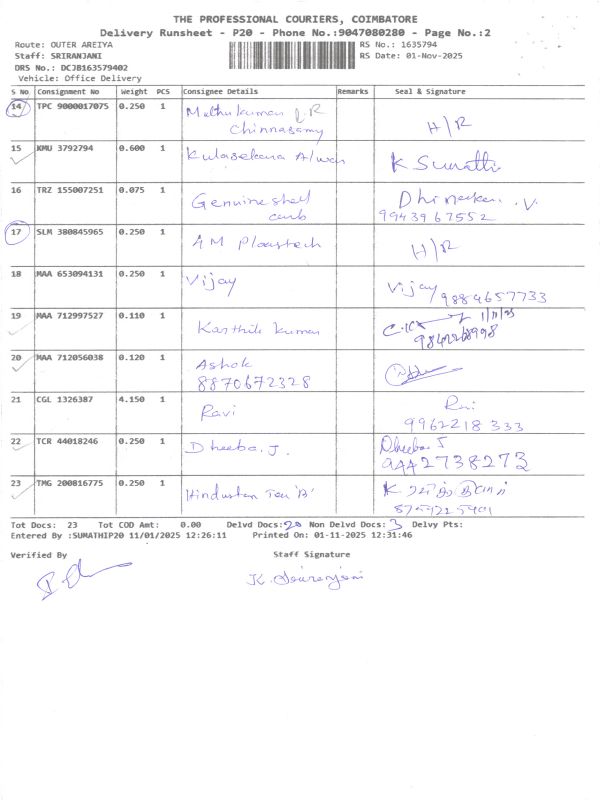 THE PROFESSIONAL COURIERS, COIMBATORE
Delivery Runsheet - P20 - Phone No.:9047080280 - Page No.:2
Route: OUTER AREIYA RS No.: 1635794
Staff: SRIRANJANI RS Date: 01-Nov-2025
DRS No.: DCJB163579402
Vehicle: Office Delivery
S No. Consignment No Weight PCS Consignee Details Remarks Seal & Signature
14 TPC 9000017075 0.250 1 Muthukumar
Chinnasamy H/R
15 KMU 3792794 0.600 1 Kulasekara Alwar K Sumathi
16 TRZ 155007251 0.075 1 Genuine shell
carb Dhinakar. V.
9943967552
17 SLM 380845965 0.250 1 AM Plastech H/R
18 MAA 653094131 0.250 1 Vijay Vijay 9884657733
19 MAA 712997527 0.110 1 Karthik Kumar 1/11/25
9842268998
20 MAA 712056038 0.120 1 Ashok
8870672328
21 CGL 1326387 4.150 1 Ravi Ravi
9962218333
22 TCR 44018246 0.250 1 Dheeba. J. Dheeba J
9442738273
23 TMG 200816775 0.250 1 Hindustan Tea 'B' K
Tot Docs: 23 Tot COD Amt: 0.00 Delvd Docs: 20 Non Delvd Docs: 3 Delvy Pts:
Entered By :SUMATHIP20 11/01/2025 12:26:11 Printed On: 01-11-2025 12:31:46
Verified By Staff Signature
K. Sriranjani